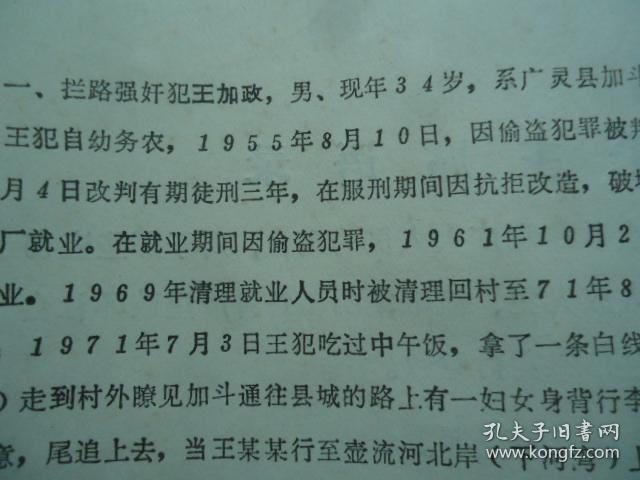 一、拦路强奸犯王加政，男、现年34岁，系广灵县加斗
王犯自幼务农，1955年8月10日，因偷盗犯罪被判
月4日改判有期徒刑三年，在服刑期间因抗拒改造，破坏
厂就业。在就业期间因偷盗犯罪，1961年10月2
业。1969年清理就业人员时被清理回村至71年8
1971年7月3日王犯吃过中午饭，拿了一条白线
）走到村外瞭见加斗通往县城的路上有一妇女身背行李
意，尾追上去，当王某某行至壶流河北岸（
孔夫子旧书网
www.kongfz.com